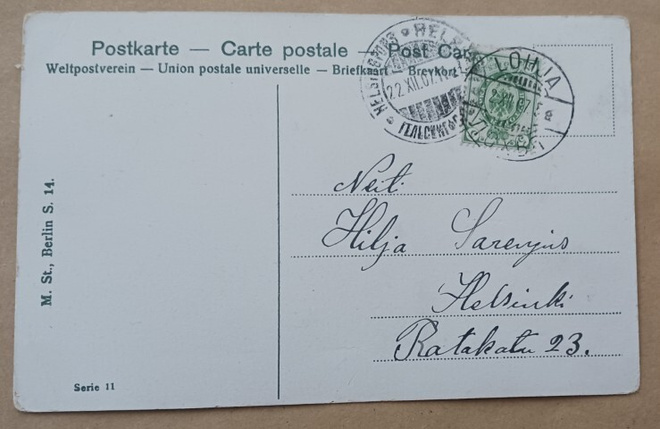 Postkarte — Carte postale — Post Car
Weltpostverein — Union postale universelle — Briefkaart — Brevkort
HELSINGFORS
HELSI
22.XII.07
ГЕЛЬСИНГФ
LOHJA
XII.07
M. St., Berlin S. 14.
Neiti
Hilja Sarenius
Helsinki
Ratakatu 23.
Serie 11